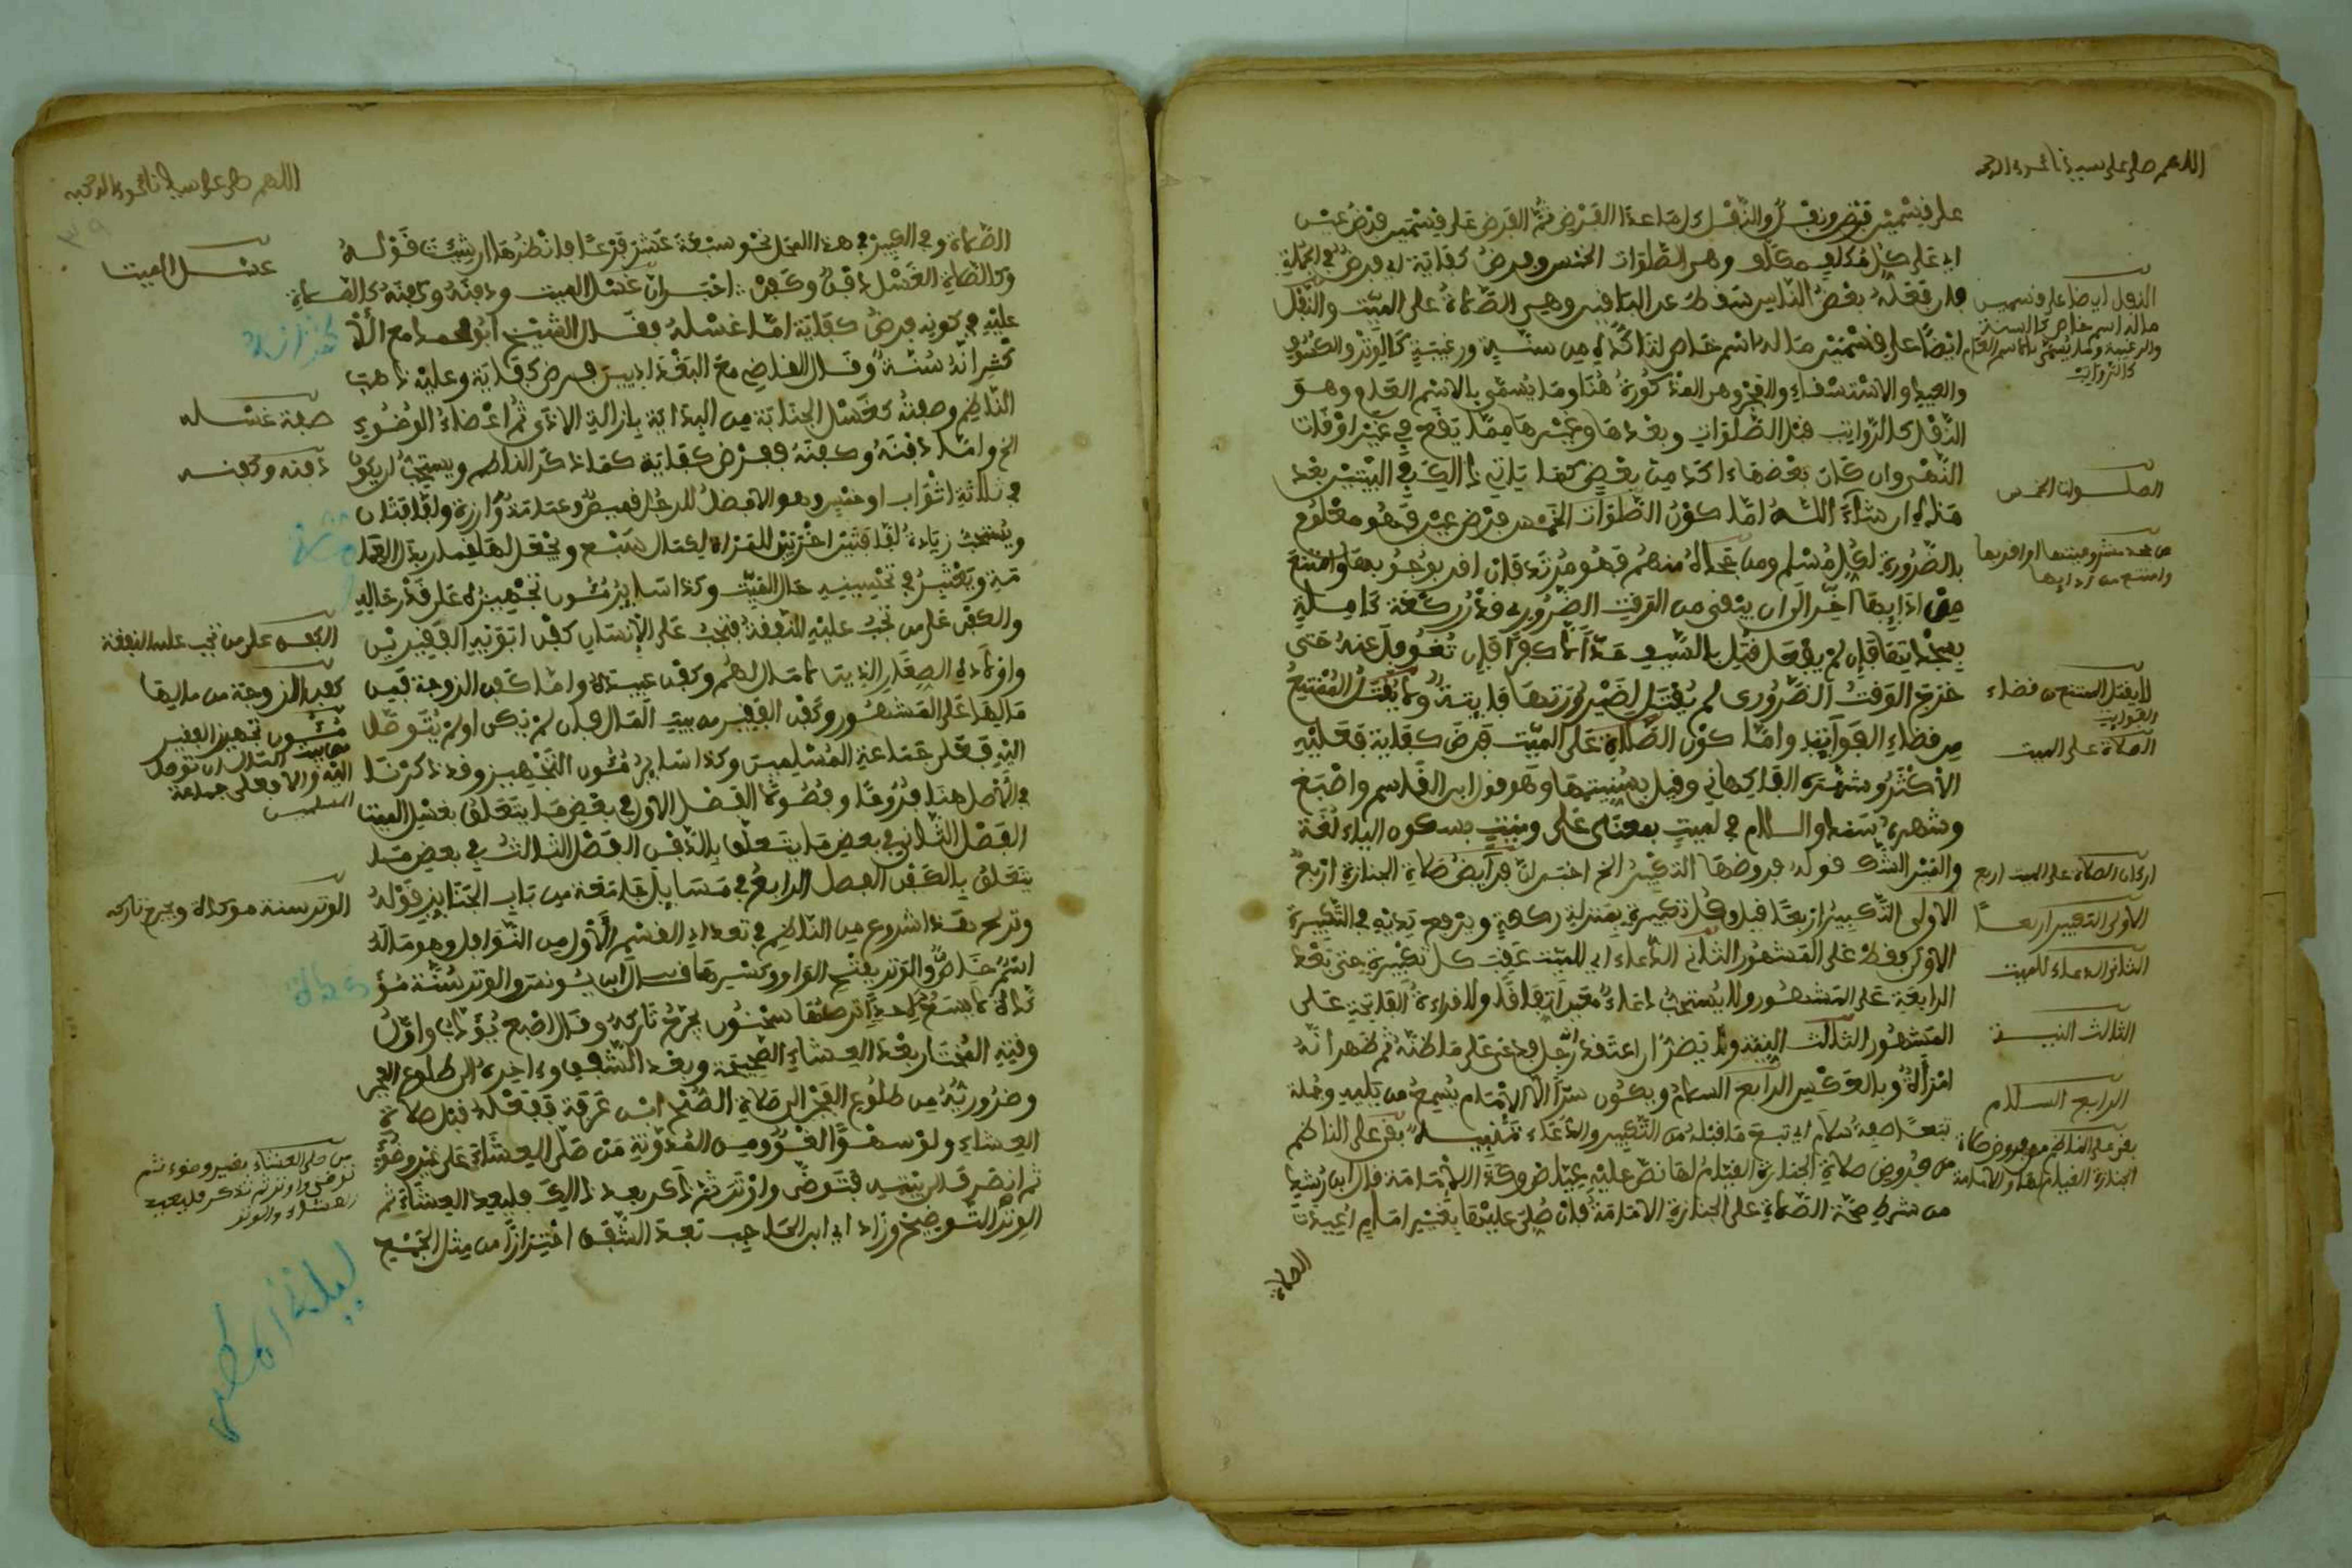 اللهم صل على سيدنا محمد وءاله
على قسمين فرض ونفل والنفل ما عدا الفرض ثم الفرض على قسمين فرض عين
اي على كل مكلف وهو الصلوات الخمس وفرض كفاية اي فرض في الجملة
فان فعله بعض الناس سقط عن الباقين وهي الصلاة على الميت والنفل
ايضا على قسمين ما له اسم خاص من سنة ورغيبة كالوتر والكسوف
والعيد والاستسقاء والفجر وهو المذكورة هنا وما يسمى بالاسم العام وهو
النفل كالرواتب قبل الصلوات وبعدها وغيرها مما يقع في غير اوقات
النهي وان كان بعضها ءاكد من بعض كما ياتي ذلك في البيتين بعد
هذا ان شاء الله اما كون الصلوات الخمس فرض عين فهو معلوم
بالضرورة لكل مسلم ومن جحد منهم فهو مرتد فان اقر بوجوبها وامتنع
من ادايها اخر الى ان يبقى من الوقت الضروري قدر ركعة كاملة
بسجدتيها فان لم يفعل قتل بالسيف حدا لا كفرا فان تغوفل عنه حتى
خرج الوقت الضروري لم يقتل لصيرورتها فايتة ولا يقتل الممتنع
من قضاء الفوايت واما كون الصلاة على الميت فرض كفاية فعليه
الاكثر وشهره الفاكهاني وقيل بسنيتها وهو قول ابن القاسم واصبغ
وشهره سند والسلام في لميت بمعنى على وميت بسكون الياء لغة
والميز الشك قوله فروضها التكبير الخ اخبر ان فرايض صلاة الجنازة اربع
الاولى التكبير اربعا قيل وكل تكبيرة بمنزلة ركعة ويرفع يديه في التكبيرة
الاولى فقط على المشهور الثاني الدعاء اي للميت عقب كل تكبيرة حتى بعد
الرابعة على المشهور ولا يستحب دعاء معين اتفاقا ولا قراءة الفاتحة على
المشهور الثالث النية ولا يضر ان اعتقد رجل فدعى على ما ظنه ثم ظهر انه
امراة وبالعكس الرابع السلام ويكون سرا الا الامام يسمع من يليه وجملة
تبعا صفة سلام اي تبع ما قبله من التكبير والدعاء تنبيه بقي على الناظم
من فروض صلاة الجنازة القيام لها نص عليه عياض وكذا الامامة قال ابن رشد
من شرط صحة الصلاة على الجنازة الامامة فان صلي عليها بغير امام اعيدت
الصلاة
النفل ايضا على قسمين
ما له اسم خاص كالسنة
والرغيبة وما يسمى بالاسم العام
كالرواتب
الصلوات الخمس
من جحد مشروعيتها او اقر بها
وامتنع من ادايها
لا يقتل الممتنع من قضاء
الفوايت
الصلاة على الميت
اركان الصلاة على الميت اربع
الاولى التكبير اربعا
الثاني الدعاء للميت
الثالث النية
الرابع السلام
بقي على الناظم من فروض صلاة
الجنازة القيام لها والامامة
اللهم صل على سيدنا محمد وءاله وصحبه
الصلاة وفي الكبير في هذا المحل نحو سبعة عشر فرعا فانظرها ان شئت قوله
وكالصلاة الغسل دفن وكفن اخبر ان غسل الميت ودفنه وكفنه كالصلاة
عليه في كونه فرض كفاية اما غسله فقال الشيخ ابو محمد مع الا
كثر انه سنة وقال القاضي مع البغداديين فرض كفاية وعليه ذهب
الناظم وصفته كغسل الجنابة من البداية بازالة الاذى ثم اعضاء الوضوء
الخ واما دفنه وكفنه ففرض كفاية كما ذكر الناظم ويستحب ان يكون
في ثلاثة اثواب او خمس وهو الافضل للرجل قميص وعمامة وازرة ولفافتان
ويستحب زيادة لفافتين اخرتين للمراة لكمال سبع ويجعل لها خمار بدل العما
مة ويعتبر في تحسينه حال الميت وكذا ساير مؤن تجهيزه على قدر حاله
والكفن على من تجب عليه النفقة فيجب على الانسان كفن ابويه الفقيرين
واولاده الصغار الذين لا مال لهم وكفن عبيده واما كفن الزوجة فمن
مالها على المشهور وكفن الفقير من بيت المال فان لم يكن او لم يتوصل
اليه فعلى جماعة المسلمين وكذا ساير مؤن التجهيز وقد ذكرنا
في الاصل هنا فروعا وفصولا الفصل الاول في بعض ما يتعلق بغسل الميت
الفصل الثاني في بعض ما يتعلق بالدفن الفصل الثالث في بعض ما
يتعلق بالكفن الفصل الرابع في مسايل جامعة من باب الجنايز قوله
وتر الخ هذا شروع من الناظم في تعداد القسم الاول من النوافل وهو ما له
اسم خاص والوتر بفتح الواو وكسرها قال ابن يونس والوتر سنة مؤ
كدة لا يسع احدا تركها سحنون يجرح تاركه وقال اصبغ يؤدب واول
وقته المختار بعد العشاء الصحيحة وبعد الشفق وءاخره الى طلوع الفجر
وضروريه من طلوع الفجر الى صلاة الصبح ابن عرفة ففعله قبل صلاة
العشاء ولو سهوا لغو ومن المدونة من صلى العشاء على غير وضوء
ثم انصرف الى بيته فتوضى واوتر ثم ذكر بعد ذلك فليعد العشاء ثم
الوتر التوضيح وزاد اي ابن الحاجب بعد الشفق احترازا من مثل الجمع
ليلة المطر
غسل الميت
صفة غسله
دفنه وكفنه
الكفن على من تجب عليه النفقة
كفن الزوجة من مالها
مؤن تجهيز الفقير
من بيت المال ان توصل
اليه والا فعلى جماعة
المسلمين
الوتر سنة مؤكدة ويجرح تاركه
من صلى العشاء بغير وضوء ثم
توضى واوتر ثم تذكر فليعد
العشاء والوتر